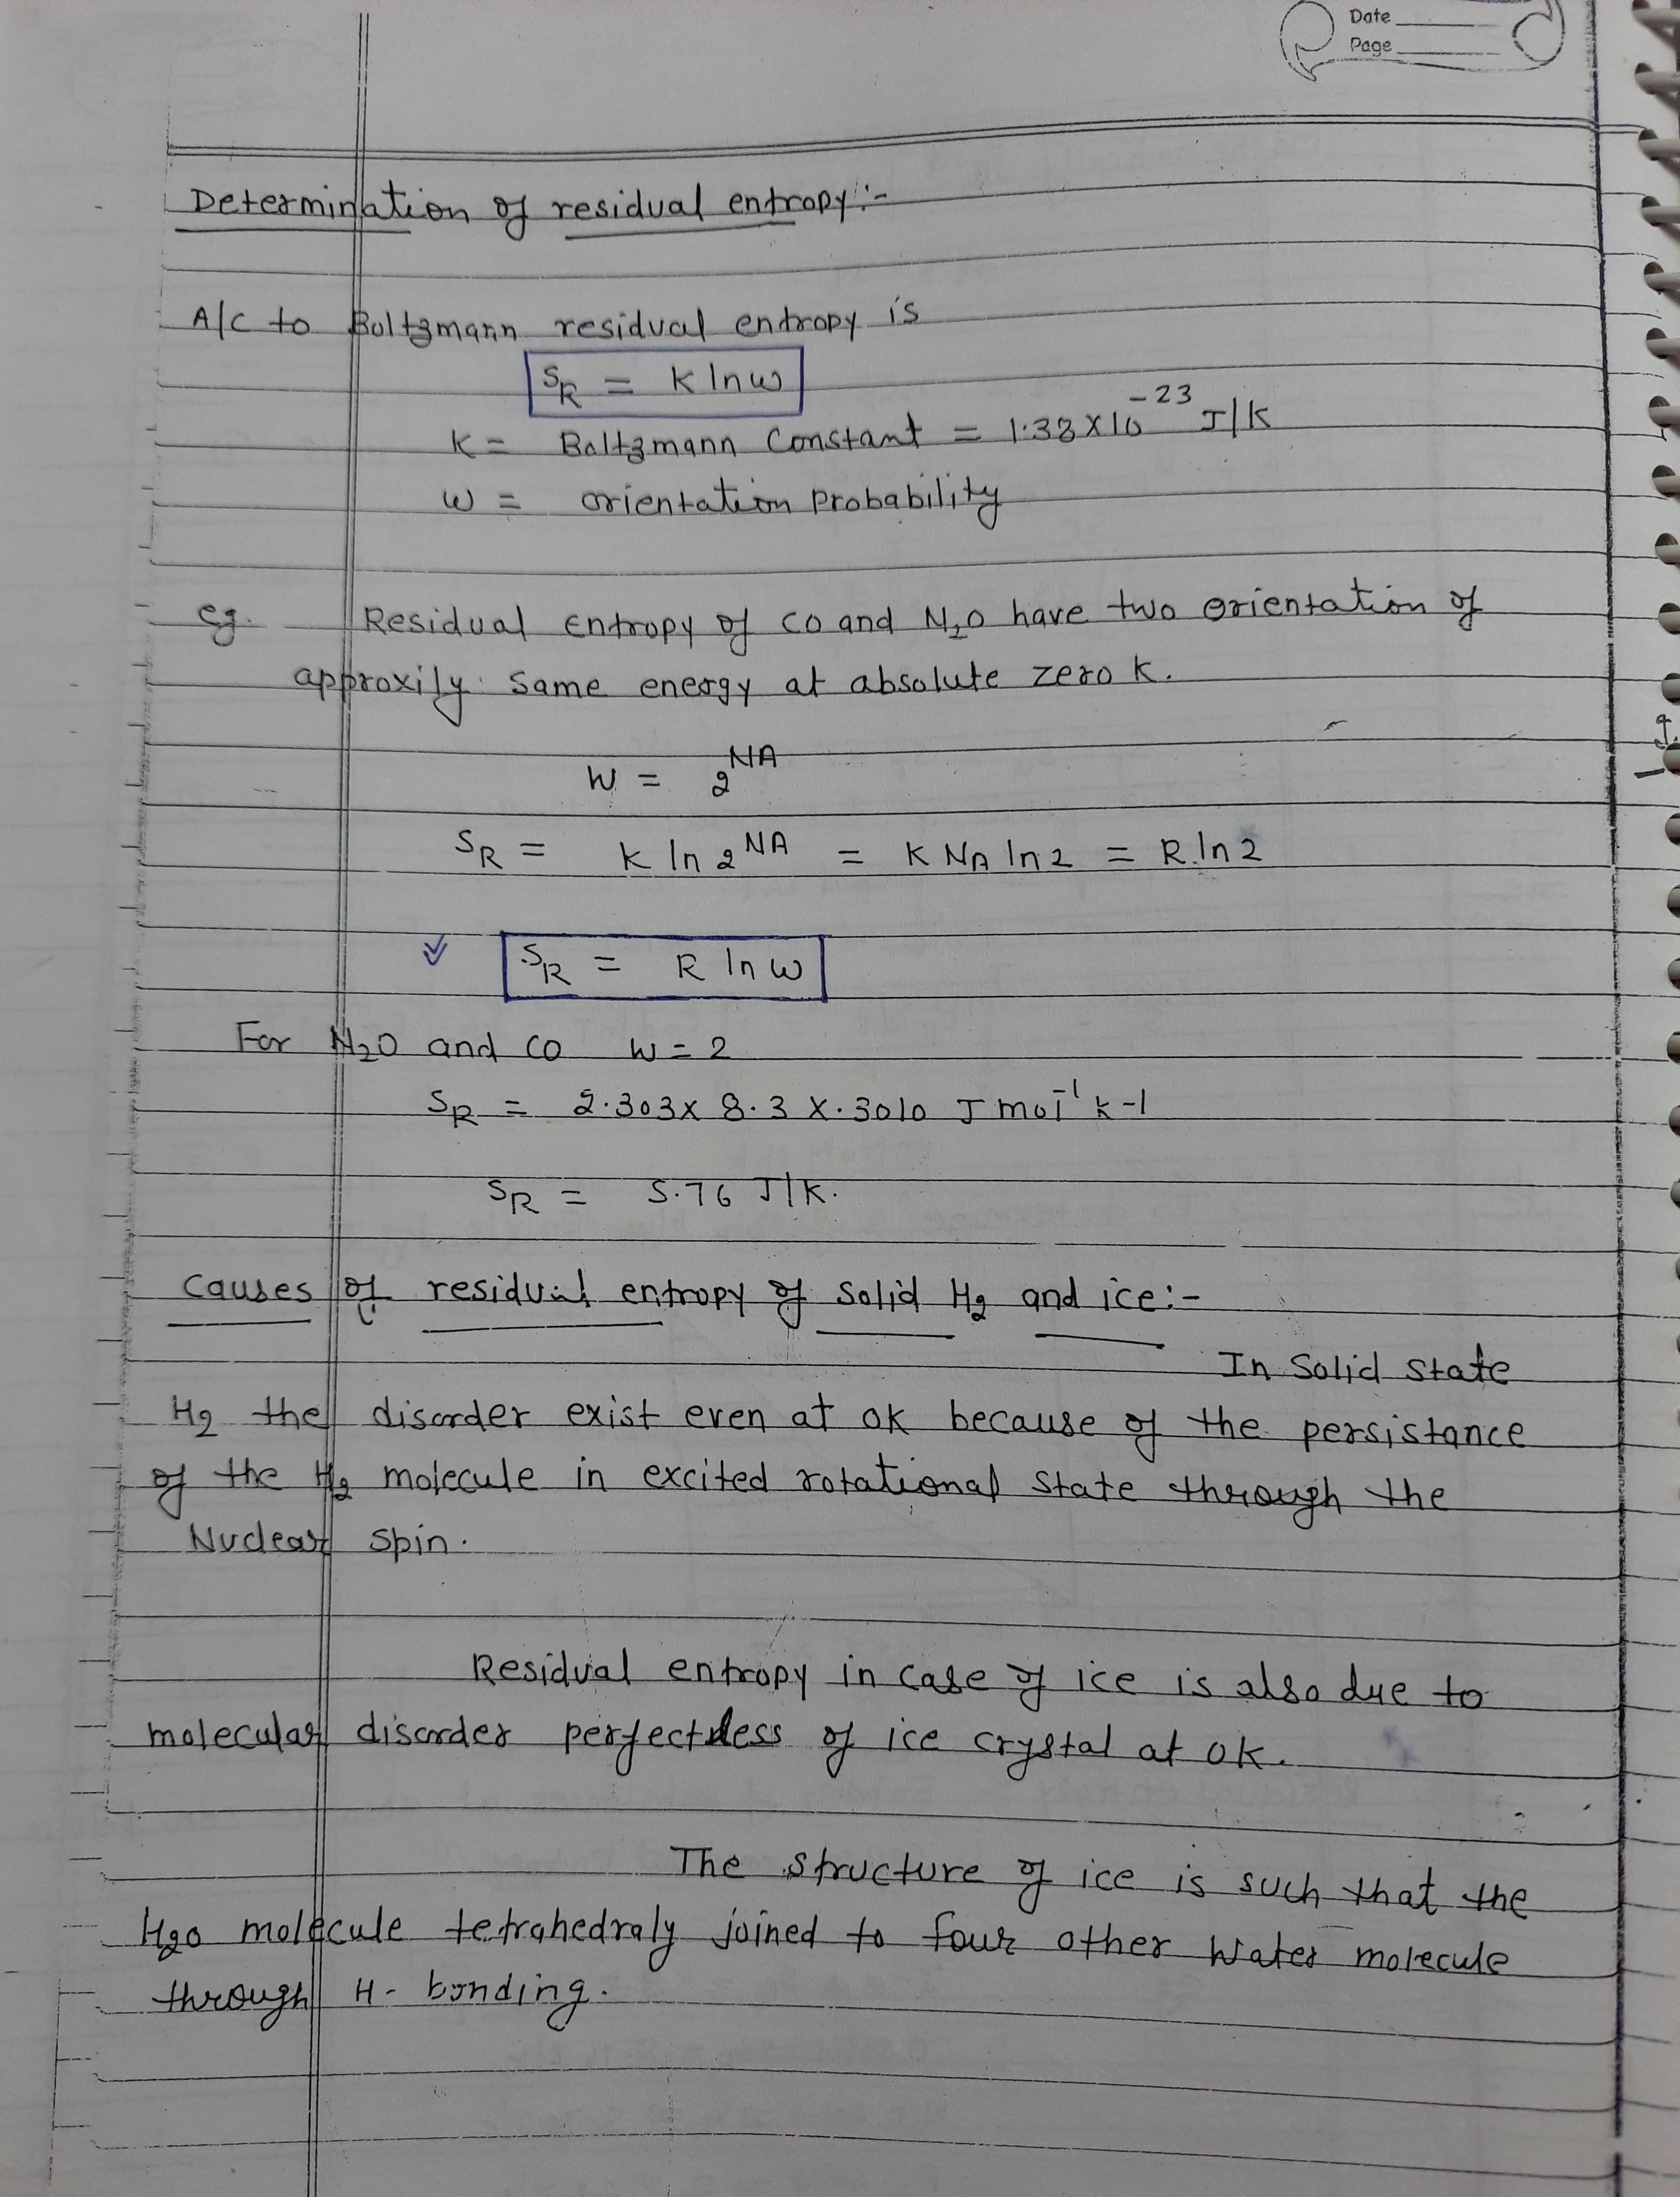 Date
Page
Determination of residual entropy:-
A/C to Boltzmann residual entropy is
S_R = K ln w
K = Boltzmann Constant = 1.38 x 10^-23 J/K
w = orientation probability
eg. Residual entropy of CO and N2O have two orientation of
approxily same energy at absolute zero K.
W = 2^NA
S_R = K ln 2^NA = K NA ln 2 = R ln 2
S_R = R ln w
For N2O and CO W = 2
S_R = 2.303 x 8.3 x .3010 J mol^-1 k-1
S_R = 5.76 J/K.
Causes of residual entropy of Solid H2 and ice:-
In Solid State
H2 the disorder exist even at 0K because of the persistance
of the H2 molecule in excited rotational State through the
Nuclear spin.
Residual entropy in case of ice is also due to
molecular disorder perfectless of ice crystal at 0K.
The structure of ice is such that the
H2O molecule tetrahedraly joined to four other water molecule
through H- bonding.